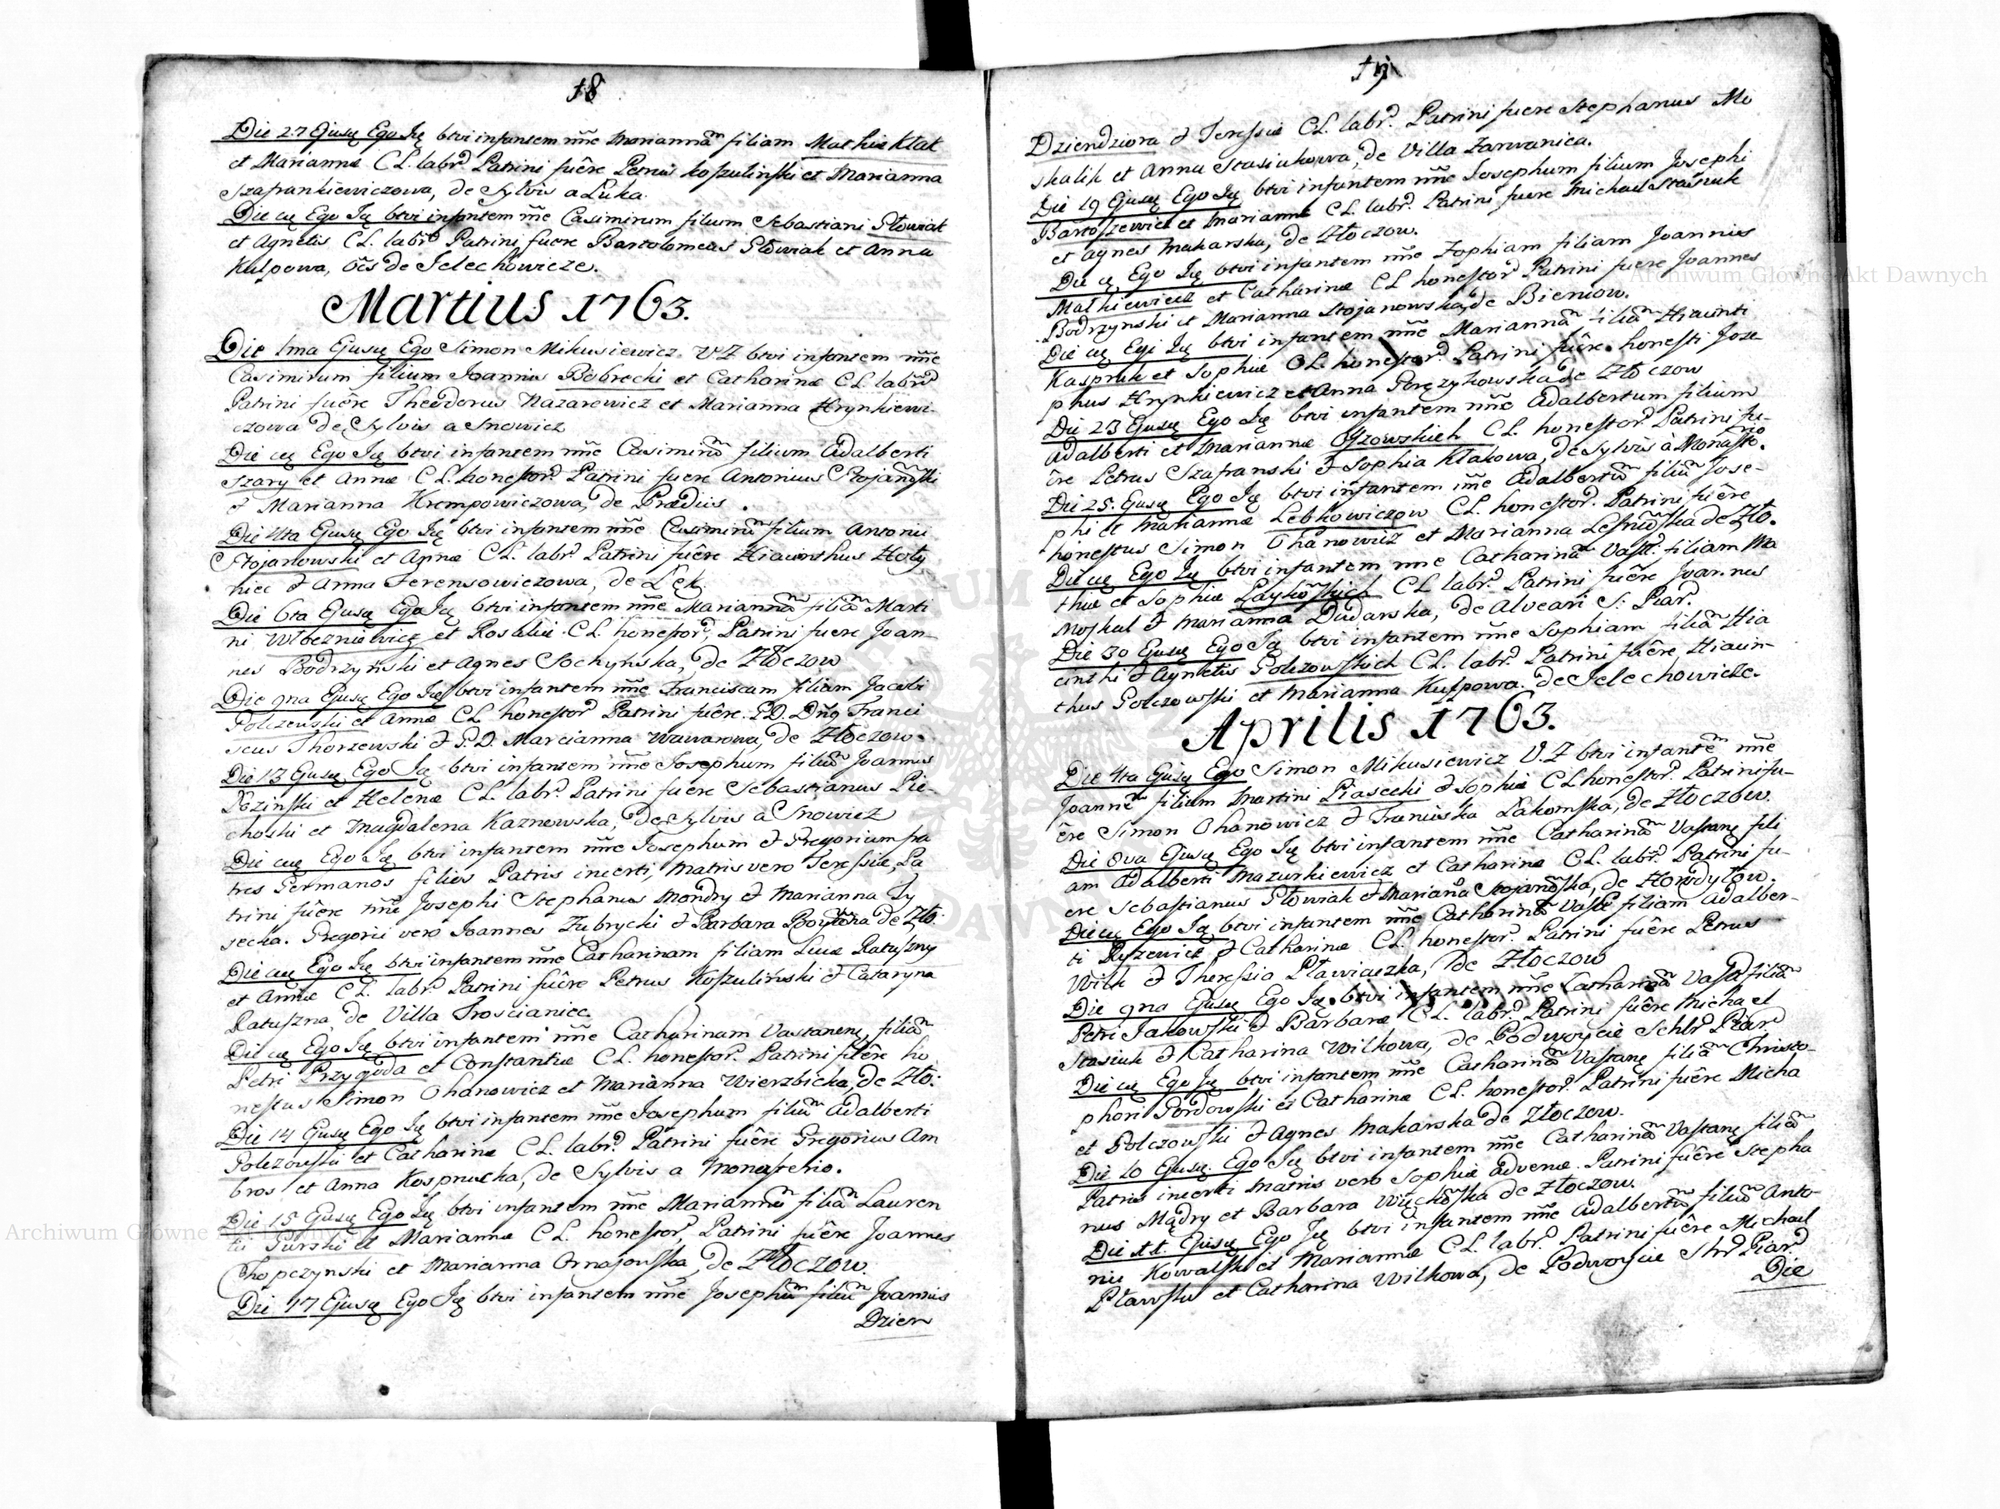 18
Die 27 Ejusq Ego Jq btvi infantem nñe Mariannam filiam Mathie Klak
et Marianne C L. labr. Patrini fuêre Petrus Koszulinski et Marianna
Szafrankiewiczowa, de Sylvis a Luka.
Die eq Ego Jq btvi infantem nñe Casimirum filium Sebastiani Słowiak
et Agnetis C L. labr. Patrini fuere Bartolomeus Słowiak et Anna
Kulpowa, ões de Jelechowicze.
Martius 1763.
Die 1ma Ejusq Ego Simon Mikusiewicz V Z btvi infantem nñe
Casimirum filium Joannis Bobrecki et Catharine C L labr.
Patrini fuêre Theodorus Nazarewicz et Marianna Hrynkiewi-
czowa de Sylvis a Snowicz
Die eq Ego Jq btvi infantem nñe Casimirum filium Adalberti
Szary et Anne C L. honestor. Patrini fuere Antonius Stojański
et Marianna Krempowiczowa, de Prædiis.
Die 4ta Ejusq Ego Jq btvi infantem nñe Casimirum filium Antonii
Stojanowski et Agnæ C L. labr. Patrini fuêre Hiacinthus Holy
hiec et Anna Ferensowiczowa, de Lęk
Die 6ta Ejusq Ego Jq btvi infantem nñe Mariannam filiam Marti
ni et Rosaliæ C L. honestor, Patrini fuere Joan-
nes Bodrzynski et Agnes Sochyńska, de Złoczow
Die 9na Ejusq Ego Jq btvi infantem nñe Franciscam filiam Jacobi
Polczewski et Anne C L honestor Patrini fuêre. P.D. Dñg Franci
scus Thorzewski et P.D. Marcianna Wawarowa, de Złoczow.
Die 13 Ejusq Ego Jq btvi infantem nñe Josephum filiũ Joannis
Kozinski et Helenæ C L. labr. Patrini fuere Sebastianus Pie-
choski et Magdalena Kaznowska, de Sylvis a Snowicz
Die eq Ego Jq btvi infantem nñe Josephum et Gregorium fra
tres Germanos filios Patris incerti, Matris vero Teressiæ, Pa
trini fuêre nñe Josephi Stephanus Mondry et Marianna Ty
secka. Gregorii vero Joannes Zubrycki et Barbara de Zło:
Die eq Ego Jq btvi infantem nñe Catharinam filiam Lucæ Ratuszny
et Annæ C L. labr. Patrini fuêre Petrus Koszuliński et Cataryna
Ratuszna, de Villa Troscianiec.
Die eq Ego Jq btvi infantem nñe Catharinam Vastanenę, filiam
Petri Przygoda et Constantiæ C L. honestor. Patrini fuêre ho
nestus Simon Ohanowicz et Marianna Wierzbicka, de Zło:
Die 14 Ejusq Ego Jq btvi infantem nñe Josephum filiũ Adalberti
Polczowski et Catharinæ C L. labr. Patrini fuêre Gregorius Am
bros et Anna Kospnucka, de Sylvis a Monasterio.
Die 15 Ejusq Ego Jq btvi infantem nñe Mariannam filiam Lauren
tii Gurski et Mariannæ C L. honestor, Patrini fuêre Joannes
Chopczynski et Marianna Ornajowska, de Złoczow.
Die 17 Ejusq Ego Jq btvi infantem nñe Josephum filium Joannis
Dzien
19
Dziendziora et Teressiæ C L. labr. Patrini fuere Stephanus Mo
skalik et Anna Stasiukowa, de Villa Zarwanica.
Die 19 Ejusq Ego Jq btvi infantem nñe Josephum filium Josephi
Bartoszewicz et Mariannæ C L. labr. Patrini fuere Michael Stasiuk
et Agnes Makarska, de Złoczow.
Die eq Ego Jq btvi infantem nñe Zophiam filiam Joannis
Matkiewicz et Catharinæ C L honestor Patrini fuere Joannes
Bodrzynski et Marianna Stojanowska, de Bieniow.
Die eq Ego Jq btvi infantem nñe Mariannam filiam Hiacinti
Kaspruk et Sophiæ C L. honestor. Patrini fuêre. honesti Jose
phus Hrynkiewicz et Anna de Złoczow
Die 23 Ejusq Ego Jq btvi infantem nñe Adalbertum filium
Adalberti et Mariannæ Olszowskich C L. honestor. Patrini fu-
êre Petrus Szafranski et Sophia Klakowa, de Sylvis à Monasterio.
Die 25. Ejusq Ego Jq btvi infantem nñe Adalbertũ filiũ Jose-
phi et Mariannæ Lebkowiczow C L. honestor. Patrini fuêre
honestus Simon Ohanowicz et Marianna Leśniowska de Zło.
Die eq Ego Jq btvi infantem nñe Catharinam Vast. filiam Ma
thiæ et Sophiæ C L. labr. Patrini fuêre Joannes
Moskal et Marianna Dudarska, de Alveari S: Piar.
Die 30 Ejusq Ego Jq btvi infantem nñe Sophiam filiam Hia
cinthi et Agnetis Golczowskich C L. labr. Patrini fuêre Hiacin-
thus Golczowski et Marianna Kulpowa. de Jelechowicze.
Aprilis 1763.
Die 4ta Ejusq Ego Simon Mikusiewicz V. Z btvi infantem nñe
Joannem filium Martini Piasecki et Sophiæ C L honestor. Patrini fu-
êre Simon Ohanowicz et Franciska Lakomska, de Złoczow.
Die 8va Ejusq Ego Jq btvi infantem nñe Catharinam Vastanę fili
am Adalberti Mazurkiewicz et Catharinæ C L. labr. Patrini fu-
ere Sebastianus Słowiak et Marianna Stojanowska, de Horodyłow.
Die eq Ego Jq btvi infantem nñe Catharinam Vast filiam Adalber-
ti Ryszewicz et Catharinæ C L. honestor. Patrini fuêre Petrus
Wilk et Theressia Pławiaczka, de Złoczow
Die 9na Ejusq Ego Jq btvi infantem nñe Catharinam Vast filiam
Petri Jakowski et Barbaræ C L. labr. Patrini fuêre Michael
Stasiuk et Catharina Wilkowa, de Podwoycie Schlr Piar
Die eq Ego Jq btvi infantem nñe Catharinam Vastanę filiam Christo-
phori Gordowski et Catharinæ C L. honestor. Patrini fuêre Micha
el Golczowski et Agnes Makarska de Złoczow.
Die 10 Ejusq. Ego Jq btvi infantem nñe Catharinam Vastanę filiam
Patris incerti Matris vero Sophiæ advenæ. Patrini fuêre Stepha
nus Mądry et Barbara Więckowska de Złoczow.
Die 11. Ejusq Ego Jq btvi infantem nñe Adalbertũ filiũ Anto-
nii Kowalski et Mariannæ C L. labr. Patrini fuêre Michael
Pławski et Catharina Wilkowa, de Podwoycie Shr Piar.
Die
Archiwum Główne Akt Dawnych
Archiwum Główne Akt Dawnych